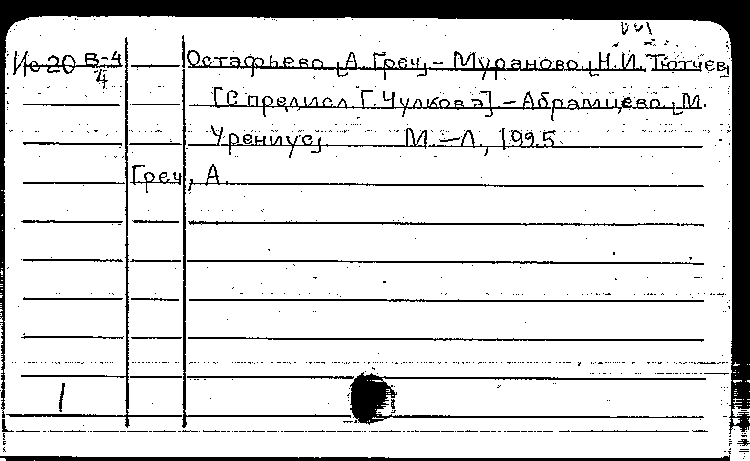 Ис 20 В-4/4 Остафьево [А. Греч] – Мураново [Н.И. Тютчев]
[С предисл. Г. Чулкова] – Абрамцево [М.
Урениус]. М.–Л., 1925.
Греч, А.
1